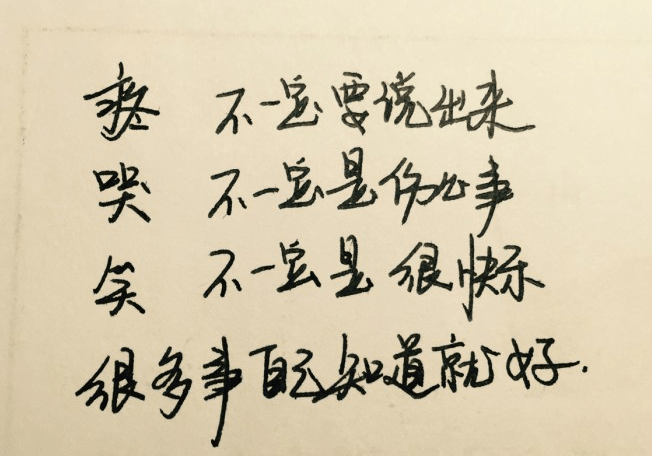 疼 不一定要说出来
哭 不一定是伤心事
笑 不一定是很快乐
很多事自己知道就好.